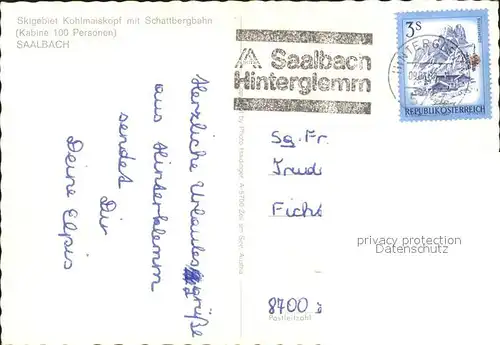 Skigebiet Kohlmaiskopf mit Schattbergbahn
(Kabine 100 Personen)
SAALBACH
Saalbach
Hinterglemm
HINTERGLE
3s
REPUBLIK ÖSTERREICH
Herzliche Urlaubsgrüße
aus Hinterklemm
sendet Dir
Deine Elpis
by Photo A-5700 Zell am See, Austria
Sg. Fr.
Trud
Ficht
8700
Postleitzahl
privacy protection
Datenschutz